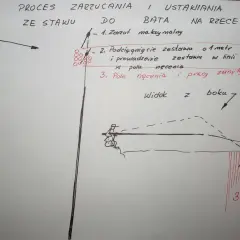 PROCES ZARZUCANIA I USTAWIANIA
ZESTAWU DO BATA NA RZECE
- 1. Zarzut maksymalny
- 2. Podciągnięcie zestawu o 1 metr
i prowadzenie zestawu w linii
w polu nęcenia
3. Pole nęcenia i pracy
Widok z boku